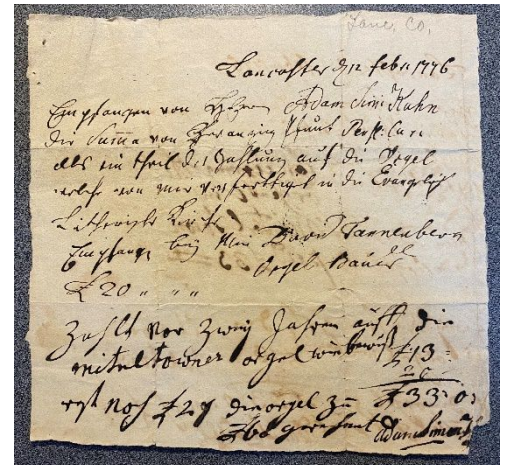 Lanc. Co.
Lancaster d 12 febr 1776
Empfangen von Herrn Adam Sim: Kuhn
die Summa von Zwanzig Pfunt Penß. Cur:
als ein theil der Zahlung auf die Orgel
welche von mir verferttiget in die Evangelisch
Lutherische Kirche
Empfangen bey mir David Tannenberg
Orgel Bauer
£ 20 " " "
Zahlt vor Zweij Jahren auff die
mitel towner orgel £13
rest noch £27 die orgel zu £33:0:
£60 gerechnet Adam Simon Kuhn